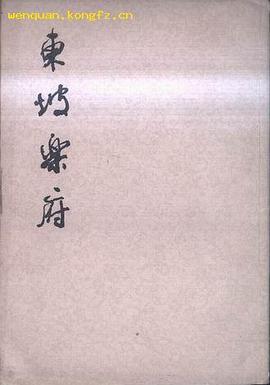 wenquan.kongfz.cn
東坡樂府